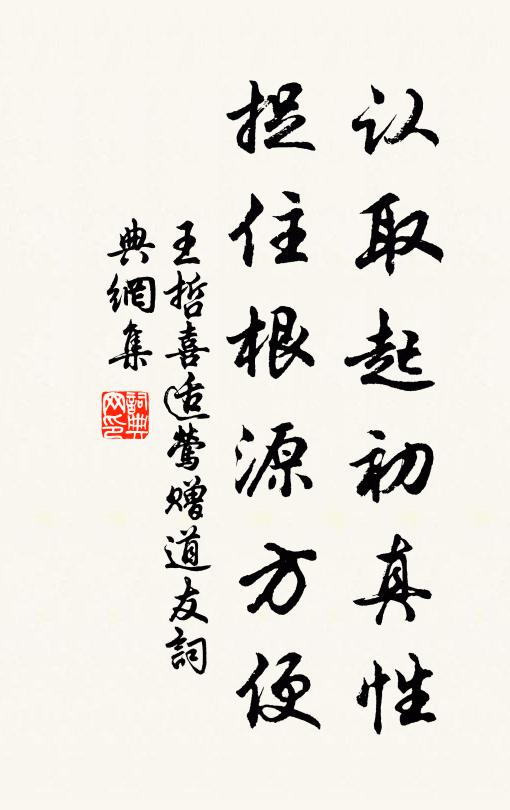 认取起初真性
捉住根源方便
王哲喜迁莺赠道友詞
典網集
詞典
网印